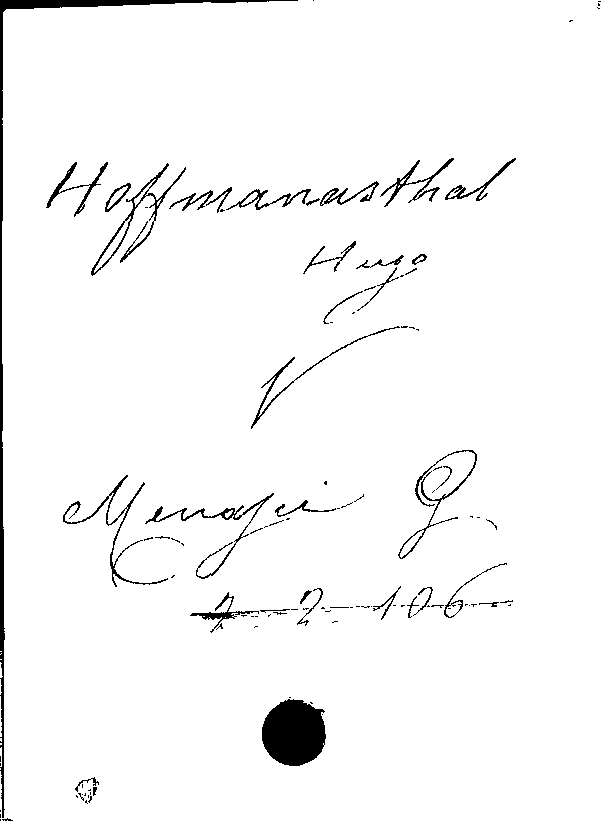 Hoffmanasthal
Hugo
Menasci G.
2. 2. 106.